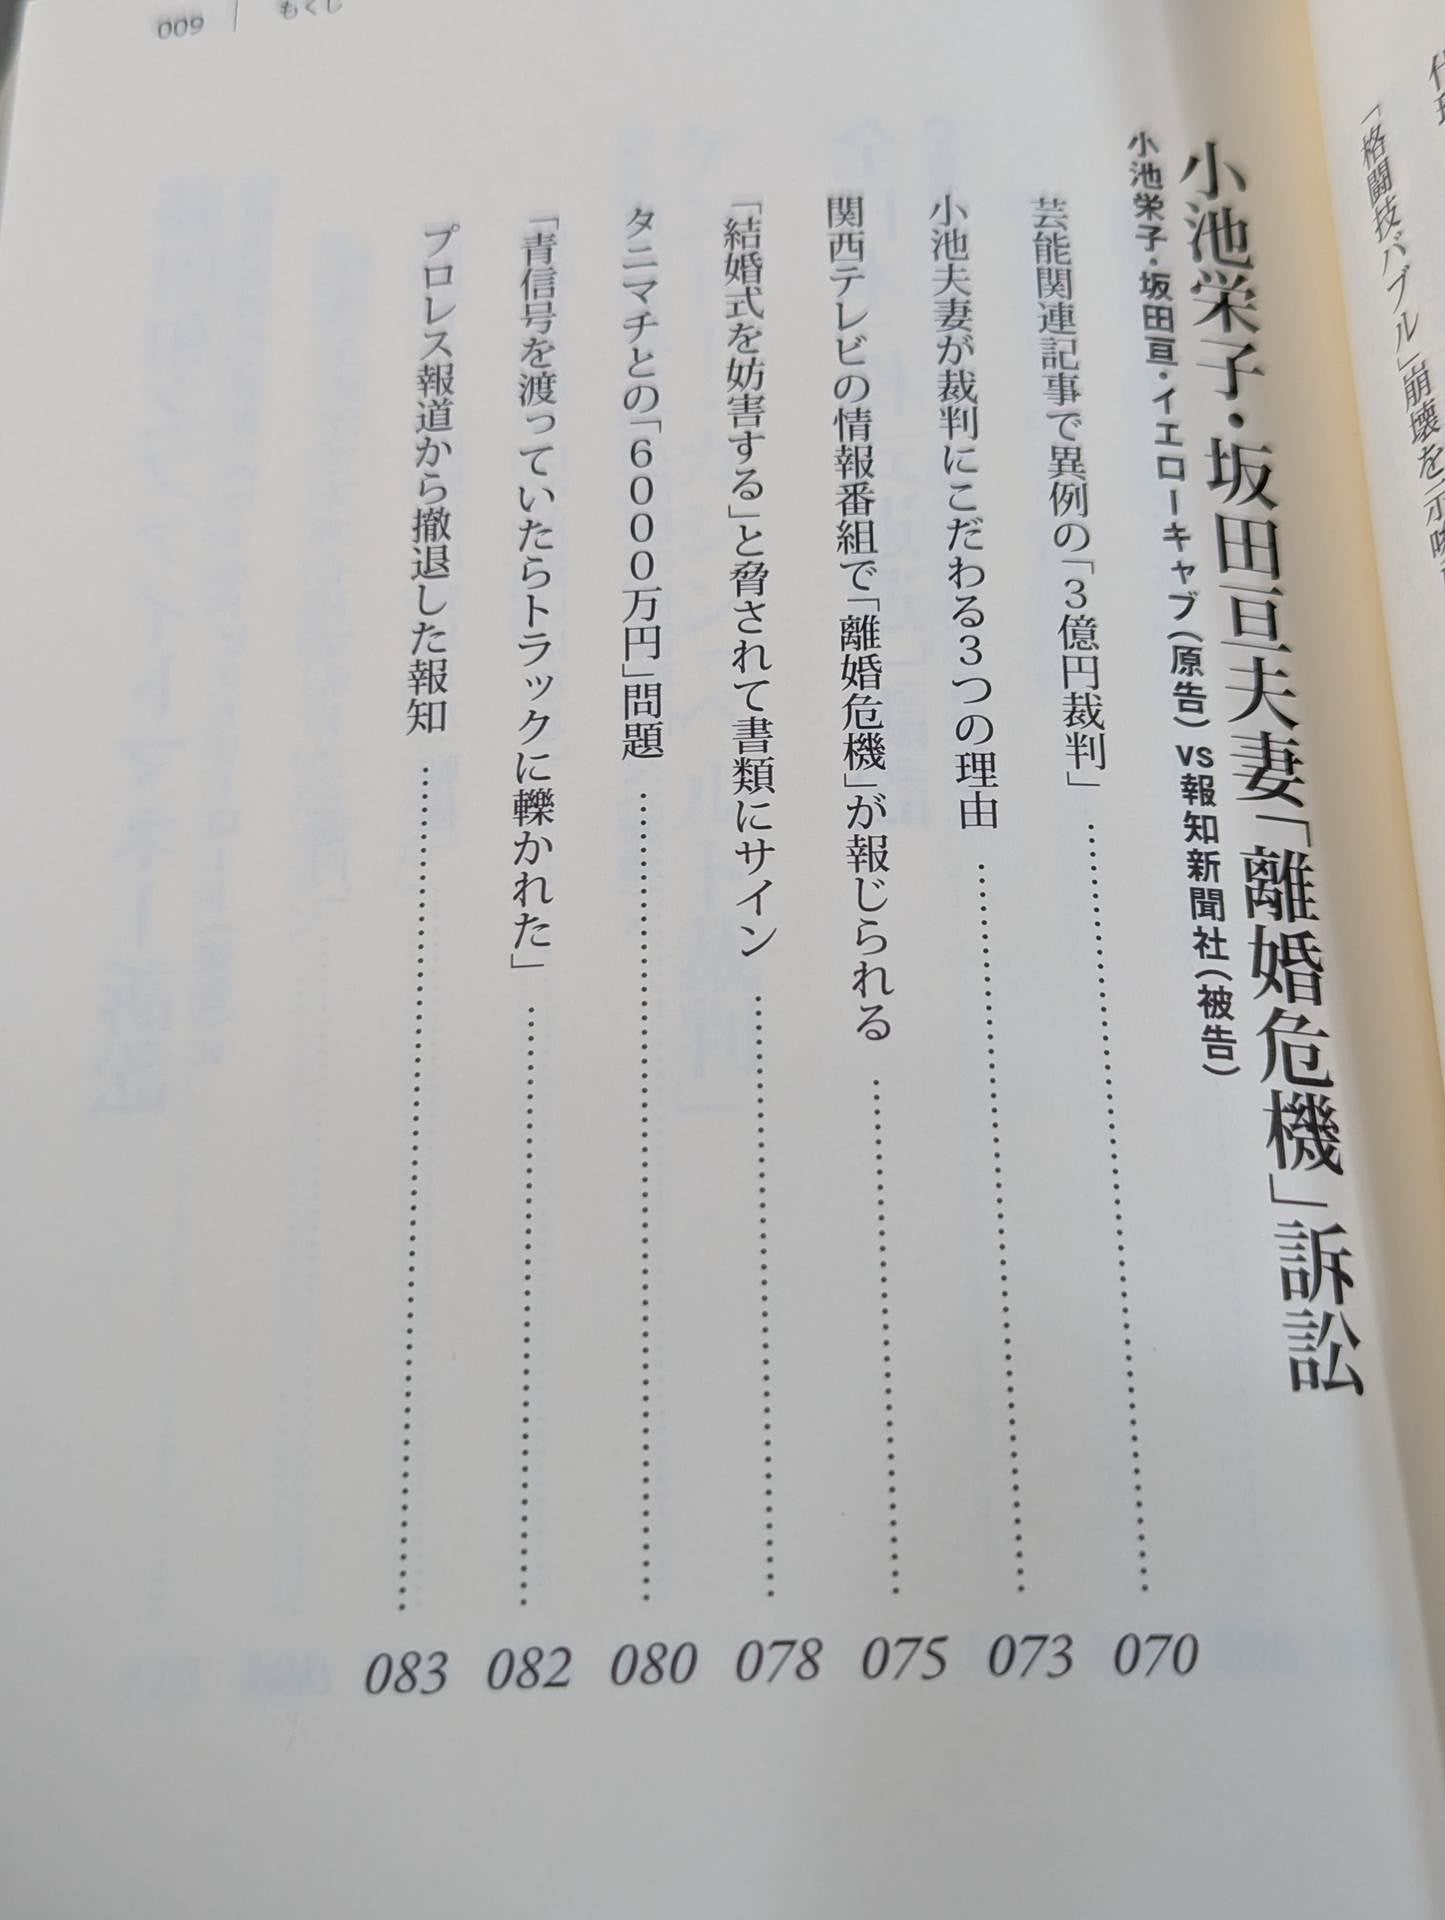 009 もくじ
「格闘技バブル」崩壊を示唆
小池栄子・坂田亘夫妻「離婚危機」訴訟
小池栄子・坂田亘・イエローキャブ(原告) VS 報知新聞社(被告)
芸能関連記事で異例の「3億円裁判」 070
小池夫妻が裁判にこだわる3つの理由 073
関西テレビの情報番組で「離婚危機」が報じられる 075
「結婚式を妨害する」と脅されて書類にサイン 078
タニマチとの「6000万円」問題 080
「青信号を渡っていたらトラックに轢かれた」 082
プロレス報道から撤退した報知 083